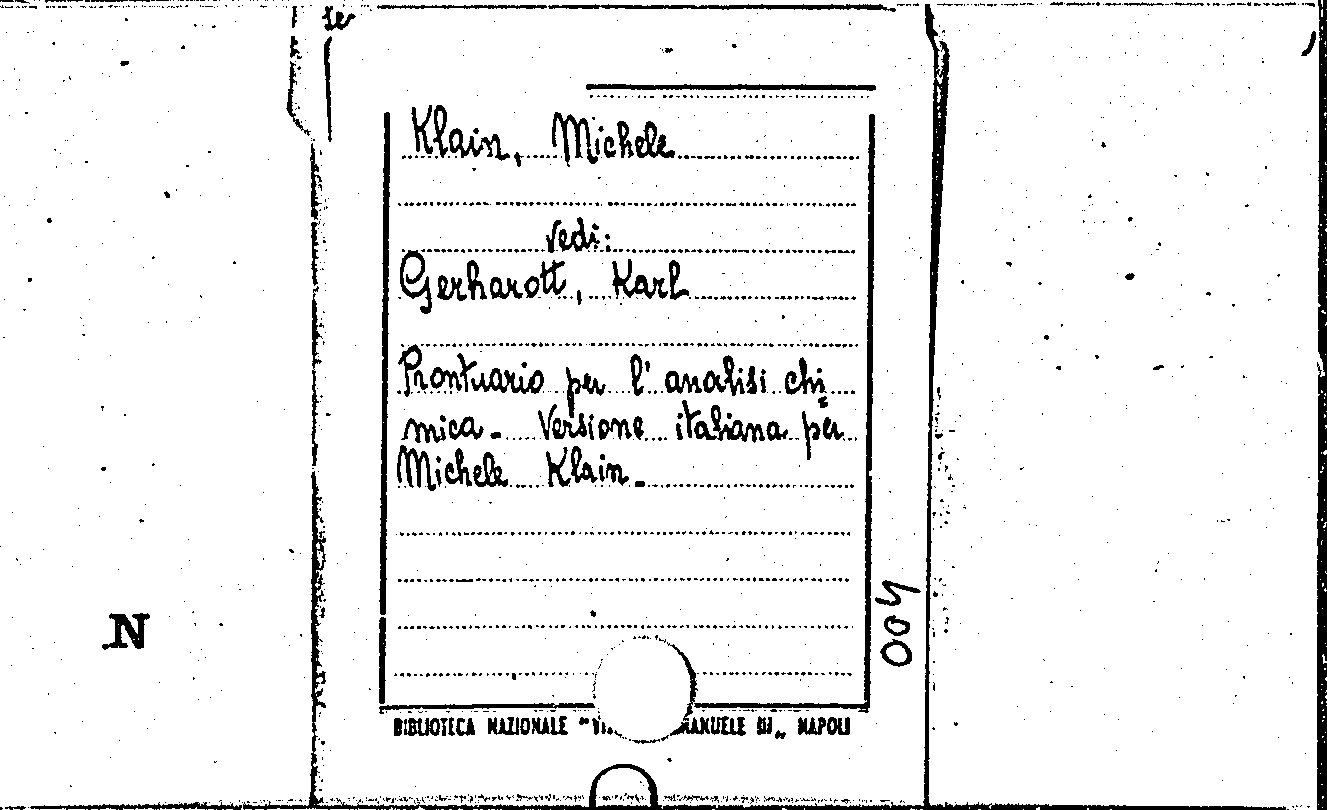 Klain, Michele
vedi:
Gerharott, Karl
Prontuario per l' analisi chi=
mica. Versione italiana per
Michele Klain.
004
N
BIBLIOTECA NAZIONALE "VI MANUELE III„ NAPOLI